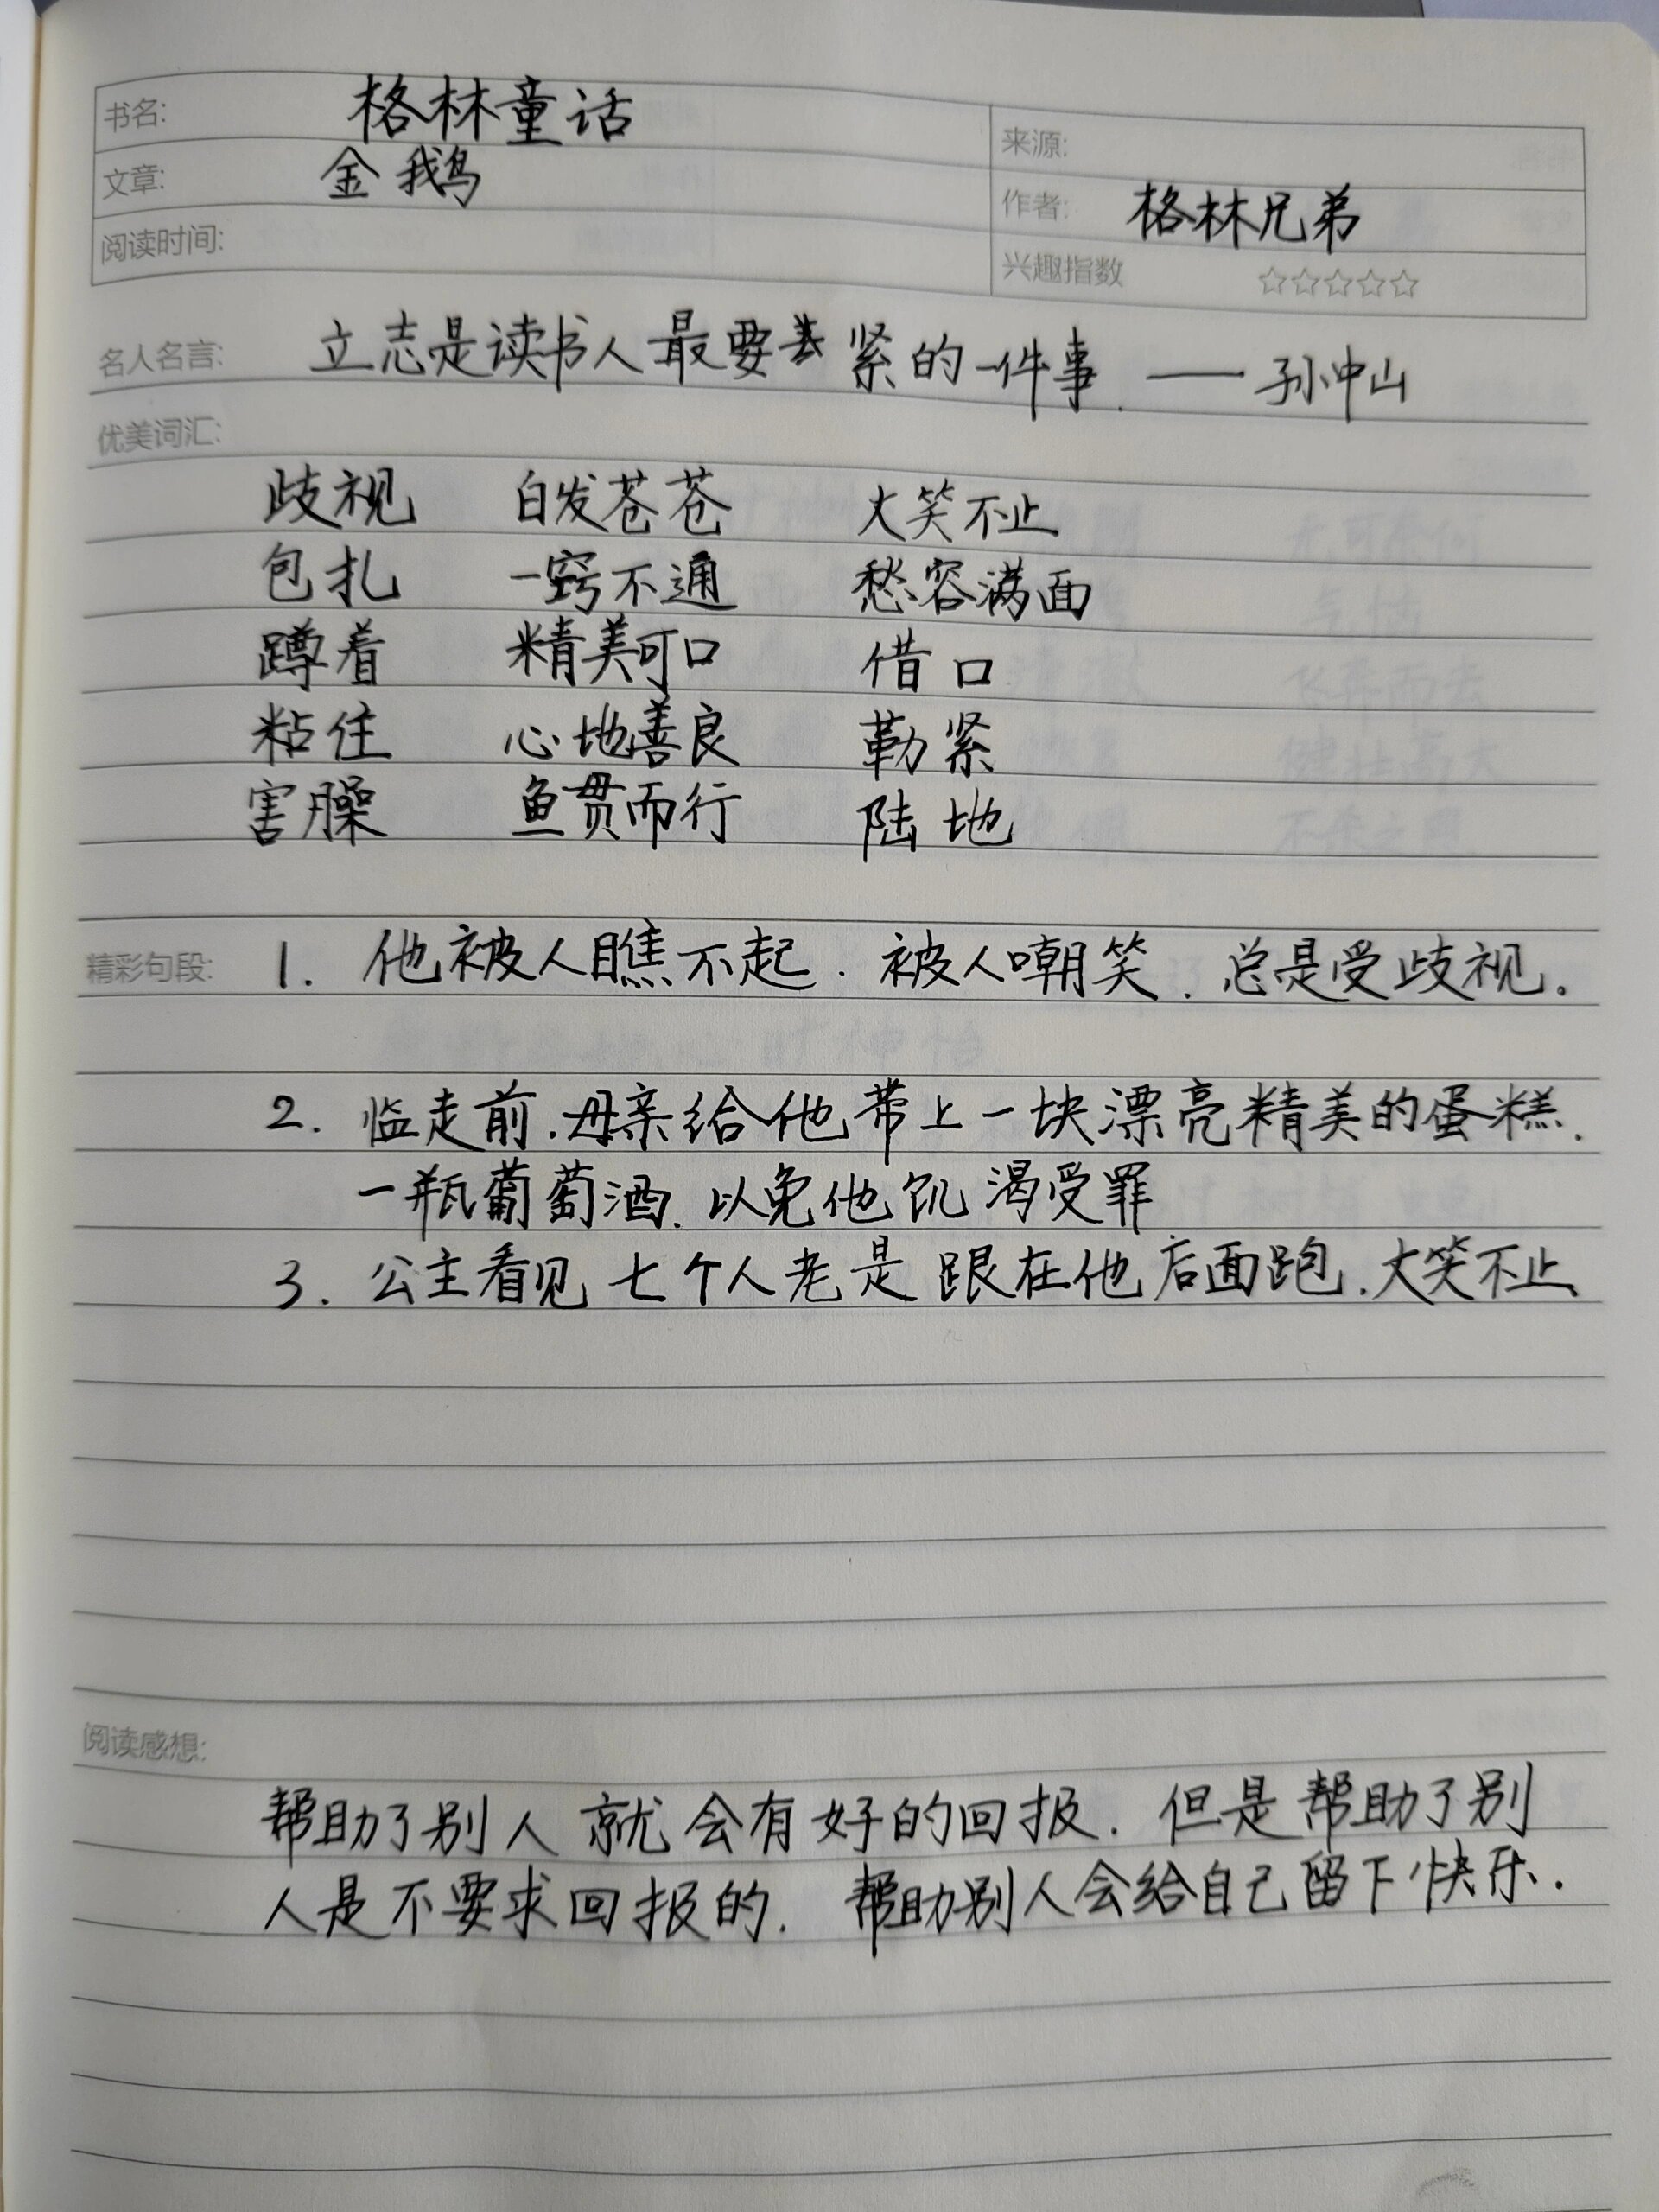 书名: 格林童话
来源:
文章: 金鹅
作者: 格林兄弟
阅读时间:
兴趣指数 ☆☆☆☆☆
名人名言: 立志是读书人最要紧的一件事. —— 孙中山
优美词汇:
歧视 白发苍苍 大笑不止
包扎 一窍不通 愁容满面
蹲着 精美可口 借口
粘住 心地善良 勒紧
害臊 鱼贯而行 陆地
精彩句段: 1. 他被人瞧不起. 被人嘲笑. 总是受歧视.
2. 临走前.母亲给他带上一块漂亮精美的蛋糕.
一瓶葡萄酒. 以免他饥渴受罪
3. 公主看见七个人老是跟在他后面跑.大笑不止
阅读感想:
帮助了别人就会有好的回报. 但是帮助了别
人是不要求回报的. 帮助别人会给自己留下快乐.